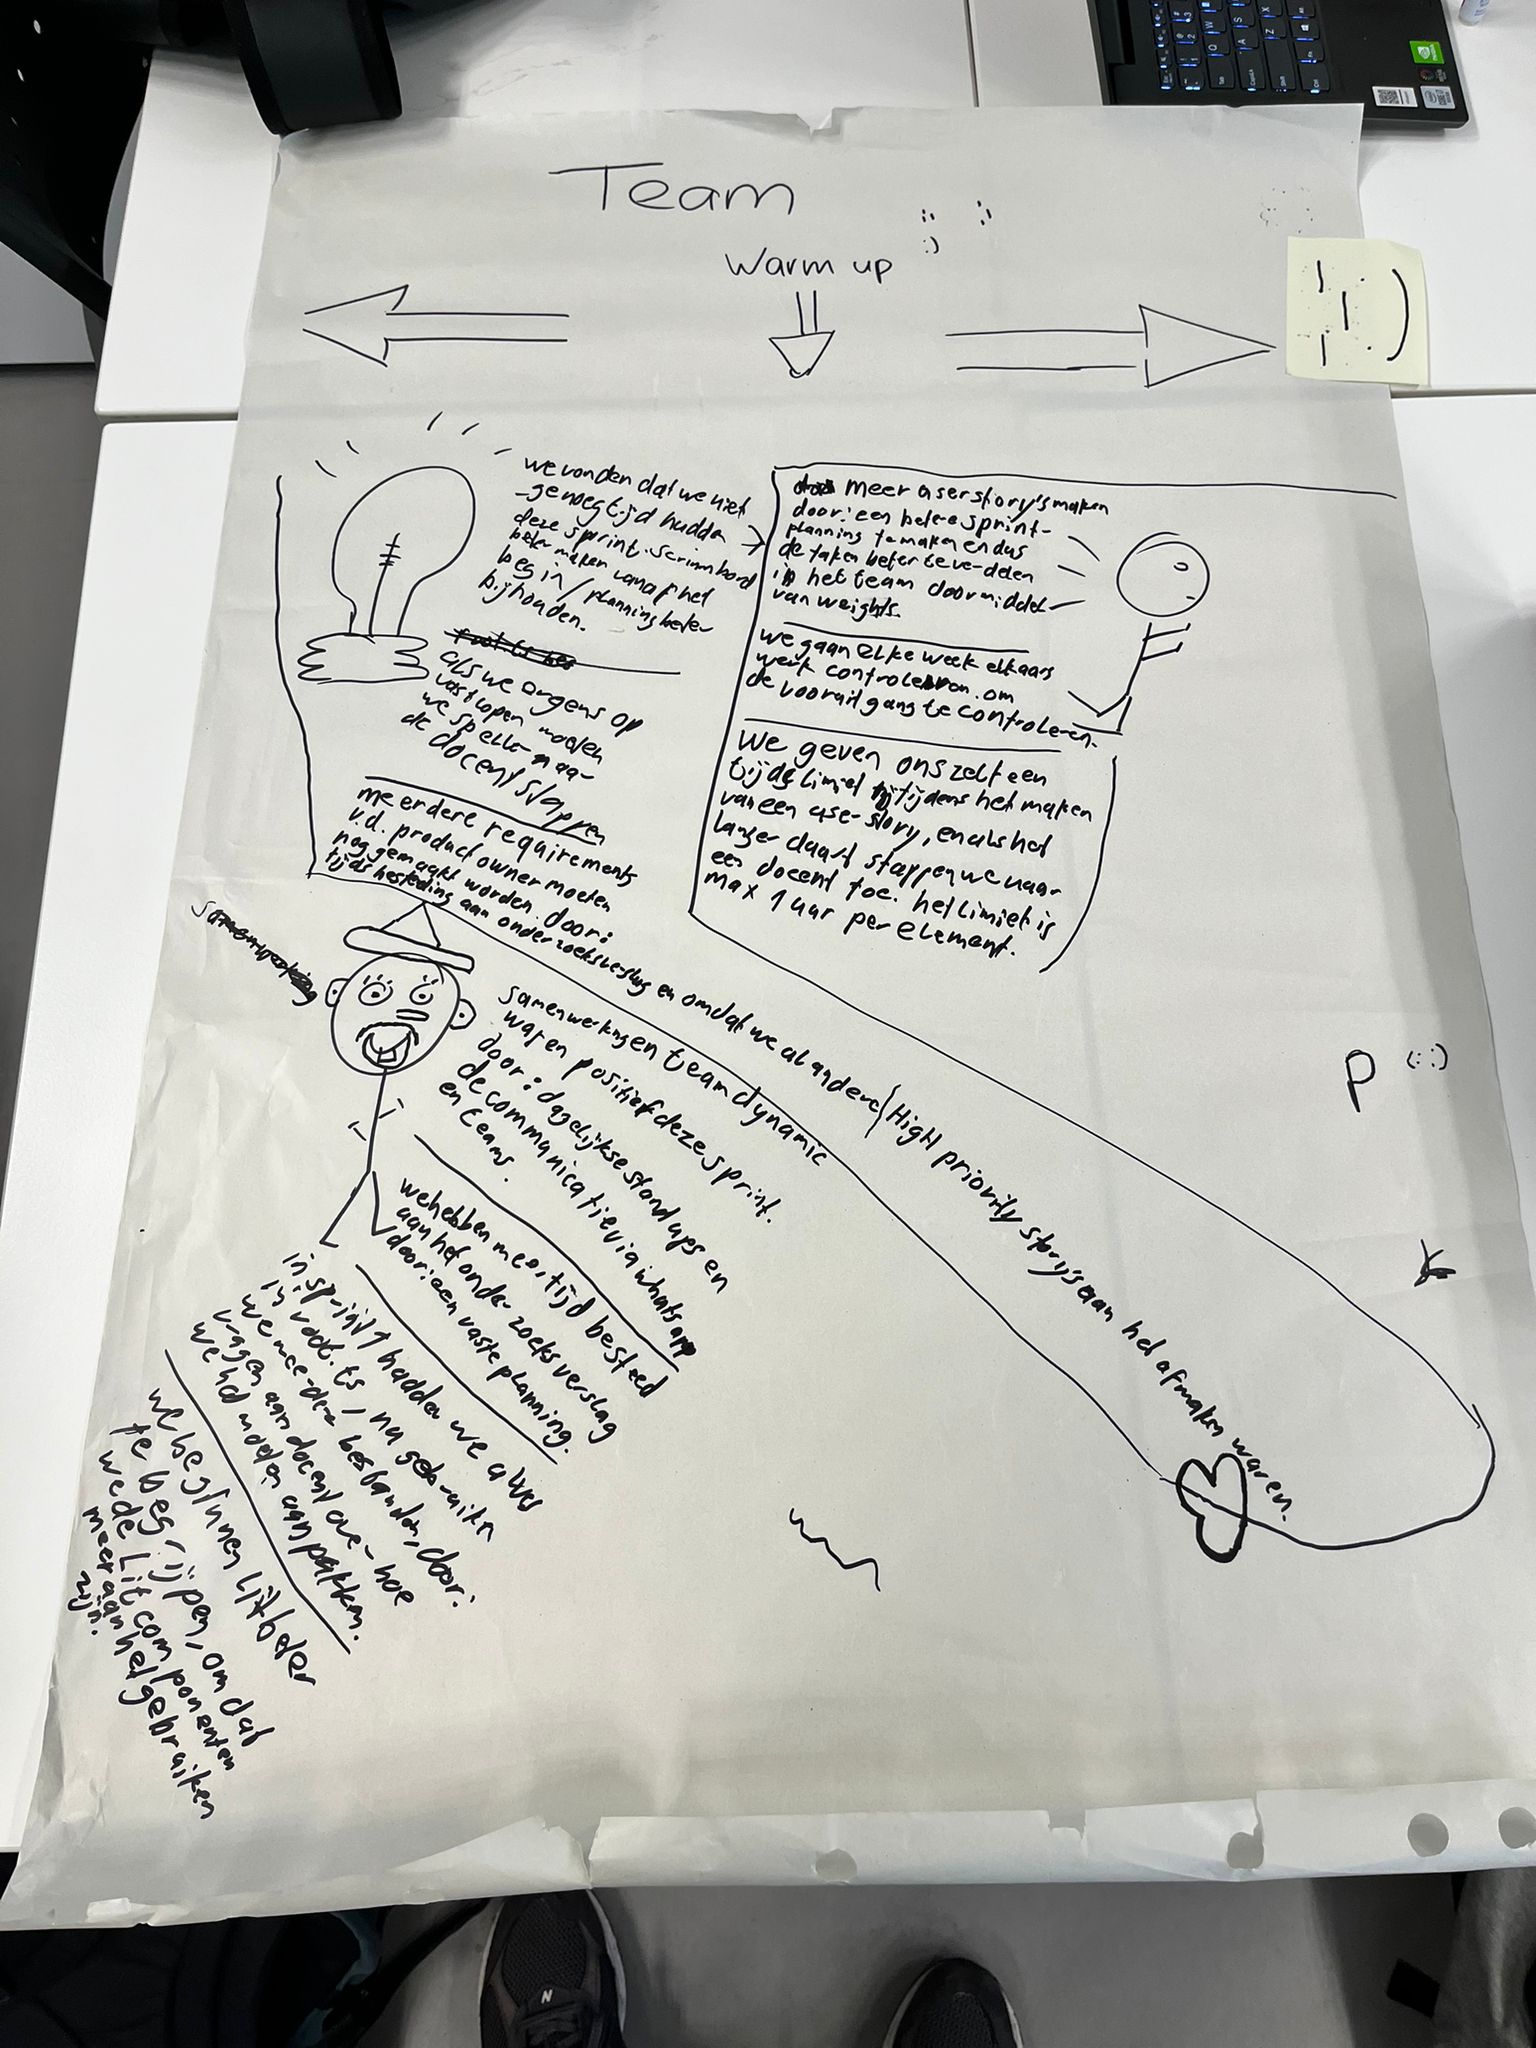 Team
Warm up
we vonden dat we niet
genoeg tijd hadden
deze sprint. scrumbord
beter maken vanaf het
begin / planning beter
bijhouden.
als we ergens op
vastlopen moeten
we sneller naar
de docent stappen
meerdere requirements
v.d. product owner moeten
nog gemaakt worden. door:
tijdsbesteding aan onderzoeksverslag en omdat we al andere / High priority story's aan het afmaken waren.
meer userstory's maken
door: een betere sprint-
planning te maken en dus
de taken beter te verdelen
in het team door middel
van weights.
we gaan elke week elkaars
werk controleren. om
de vooruitgang te controleren.
We geven ons zelf een
tijds limiet tijdens het maken
van een user-story, en als het
langer duurt stappen we naar
een docent toe. het limiet is
max 1 uur per element.
samenwerking
samenwerking en teamdynamic
waren positief deze sprint.
door: dagelijkse stand ups en
de communicatie via whatsapp
en teams.
we hebben meer tijd besteed
aan het onderzoeks verslag
door: een vaste planning.
in sprint 1 hadden we alles
in root.ts, nu gebruiken
we meerdere bestanden, door:
vragen aan docent over hoe
we het moeten aanpakken.
we beginnen lit beter
te begrijpen, omdat
we de Lit componenten
meer aan het gebruiken
zijn.
P